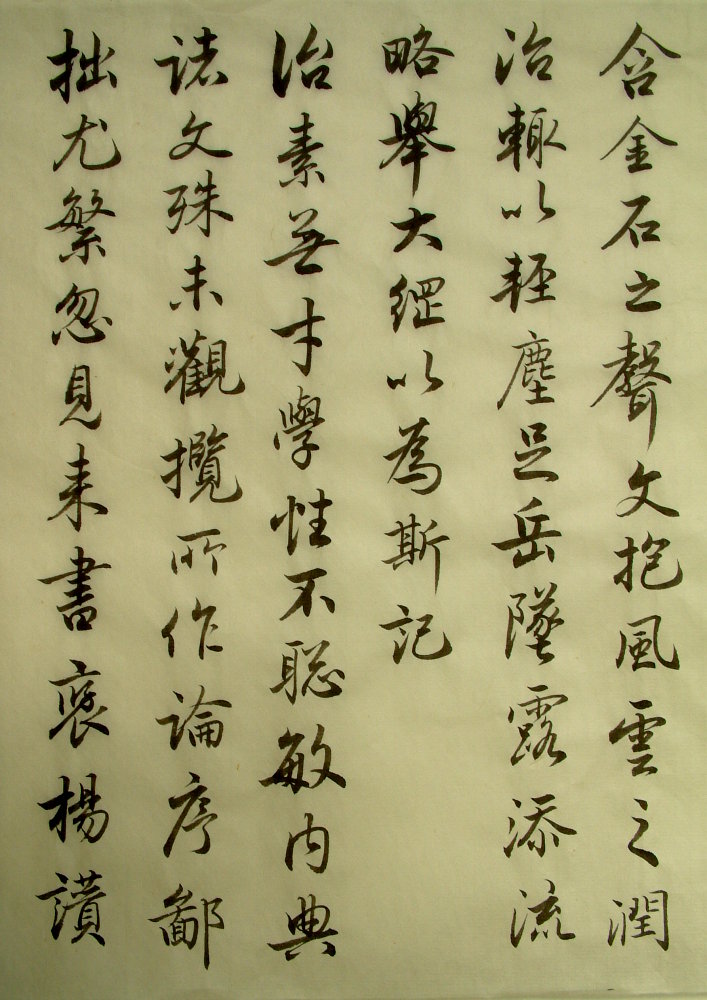 含金石之聲文抱風雲之潤
治輙以輕塵足岳墜露添流
略舉大綱以為斯記
治素無才學性不聡敏内典
諸文殊未觀攬所作論序鄙
拙尤繁忽見来書褒揚讃